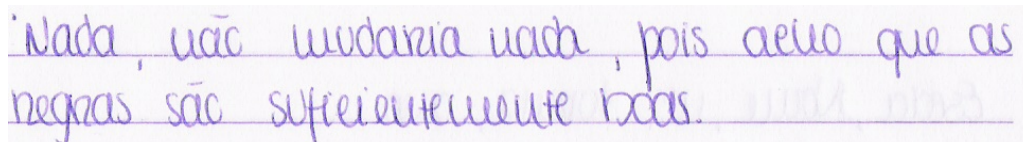 Nada, não mudaria nada, pois acho que as
regras são suficientemente boas.